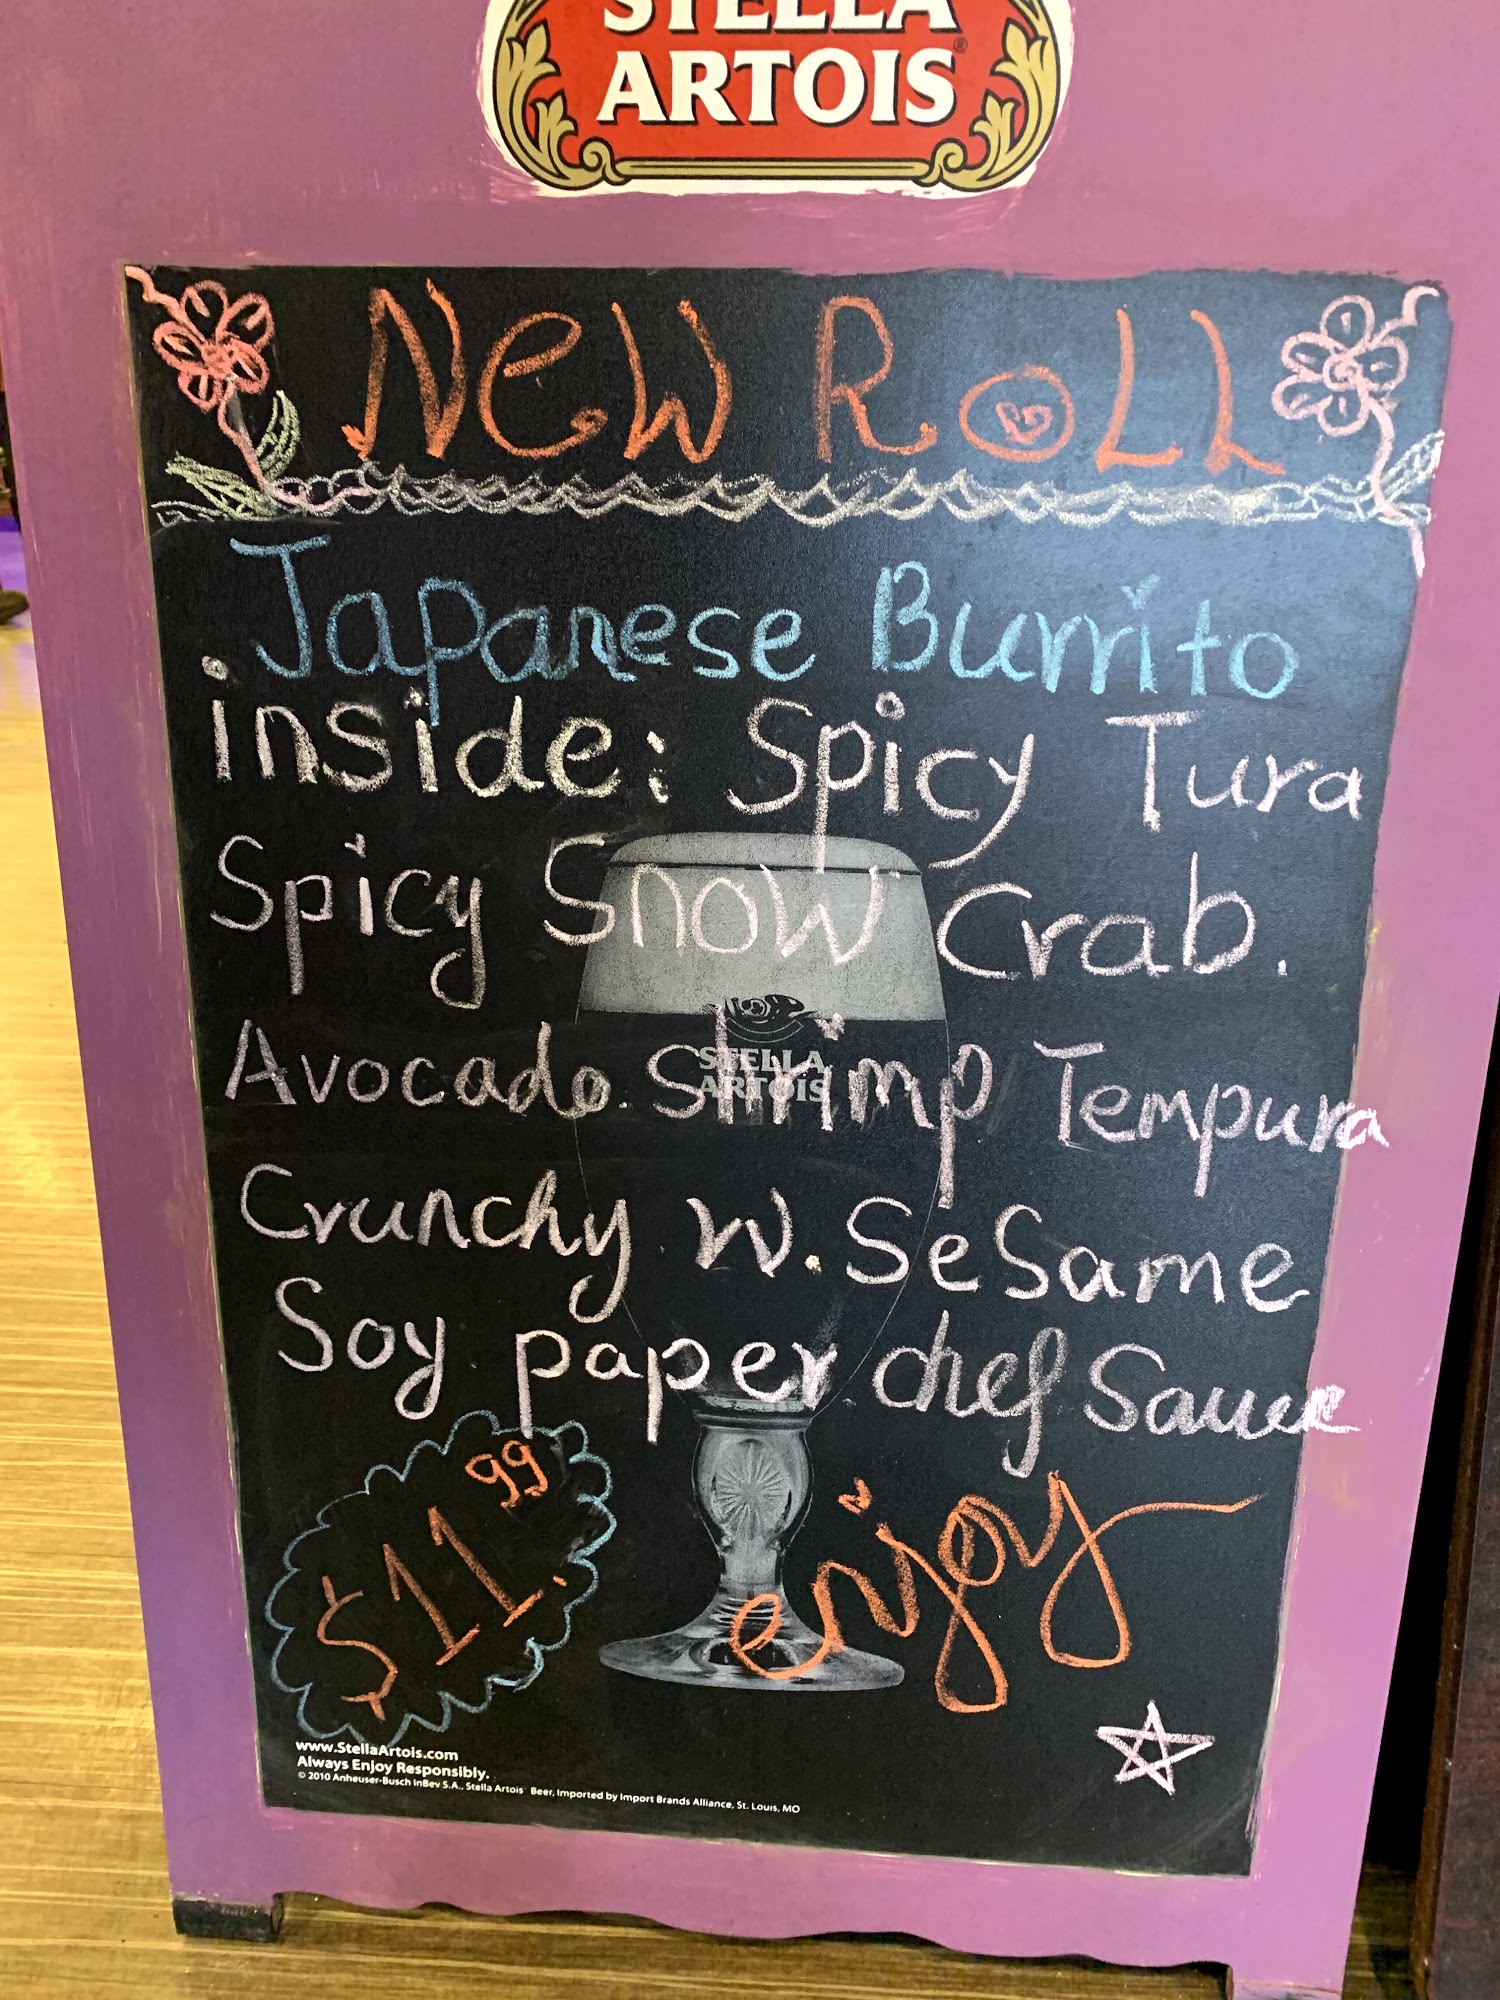 STELLA
ARTOIS
NeW RoLL
Japanese Burrito
inside: Spicy Tura
Spicy Snow Crab.
Avocado. Shrimp Tempura
Crunchy W. SeSame
Soy paper. chef Sauce
$11.99
enjoy
STELLA
ARTOIS
www.StellaArtois.com
Always Enjoy Responsibly.
© 2010 Anheuser-Busch InBev S.A., Stella Artois® Beer, Imported by Import Brands Alliance, St. Louis, MO